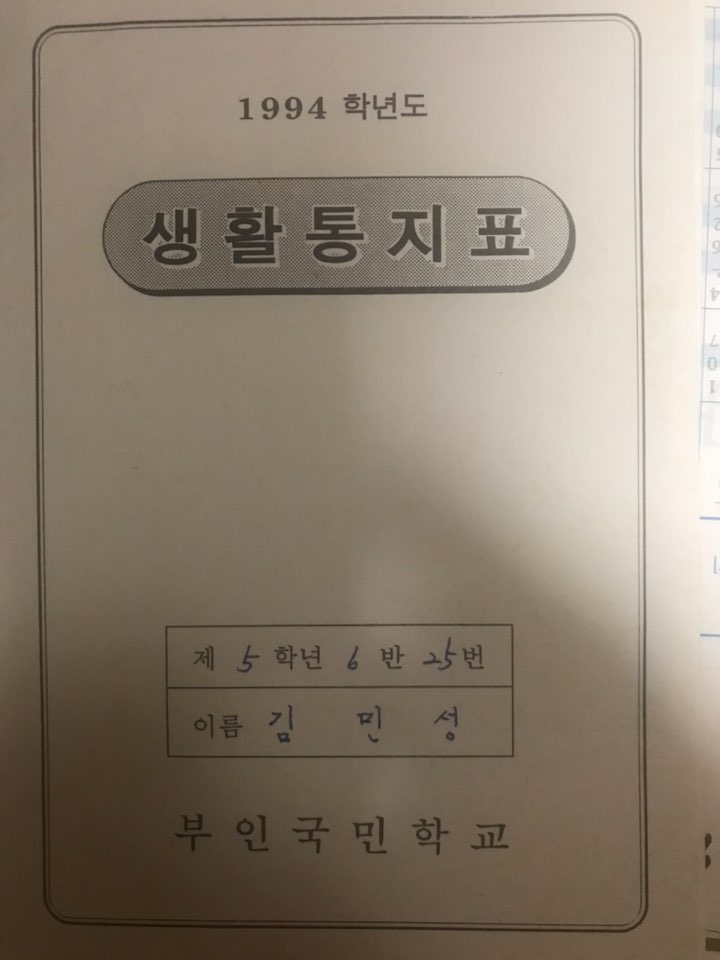 1994 학년도
생활통지표
제 5 학년 6 반 25번
이름 김 민 성
부인국민학교